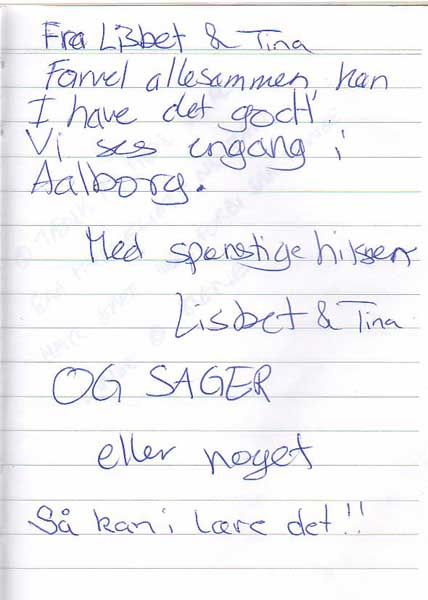 Fra Lisbet & Tina
Farvel allesammen, kan
I have det godt!
Vi ses engang i
Aalborg.
Med spenstige hilsner
Lisbet & Tina
OG SAGER
eller noget
Så kan i lære det!!